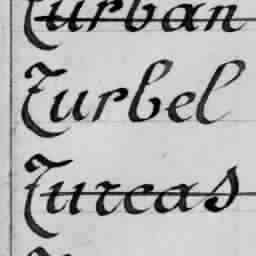 Turban
Turbel
Turcas